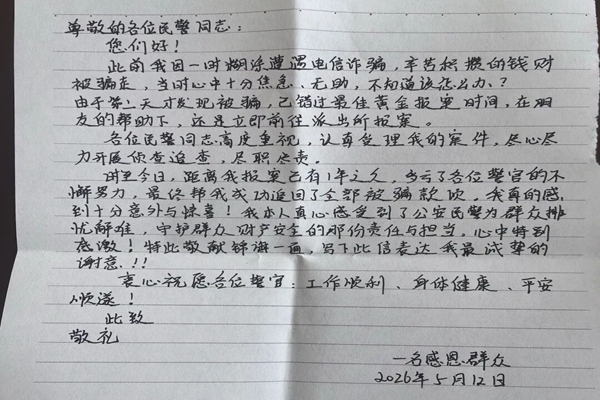 尊敬的各位民警同志：
您们好！
此前我因一时糊涂遭遇电信诈骗，辛苦积攒的钱财
被骗走，当时心中十分焦急、无助，不知道该怎么办？
由于第二天才发现被骗，已错过最佳黄金报案时间，在朋
友的帮助下，还是立即前往派出所报案。
各位民警同志高度重视，认真受理我的案件，尽心尽
力开展侦查追查，尽职尽责。
时至今日，距离我报案已有1年之久，多亏了各位警官的不
懈努力，最终帮我成功追回了全部被骗款项。我真的感
到十分意外与惊喜！我本人真心感受到了公安民警为群众排
忧解难，守护群众财产安全的那份责任与担当。心中特别
感激！特此敬献锦旗一面，写下此信表达我最诚挚的
谢意.!!
衷心祝愿各位警官：工作顺利、身体健康、平安
顺遂！
此致
敬礼
一名感恩群众
2026年5月12日